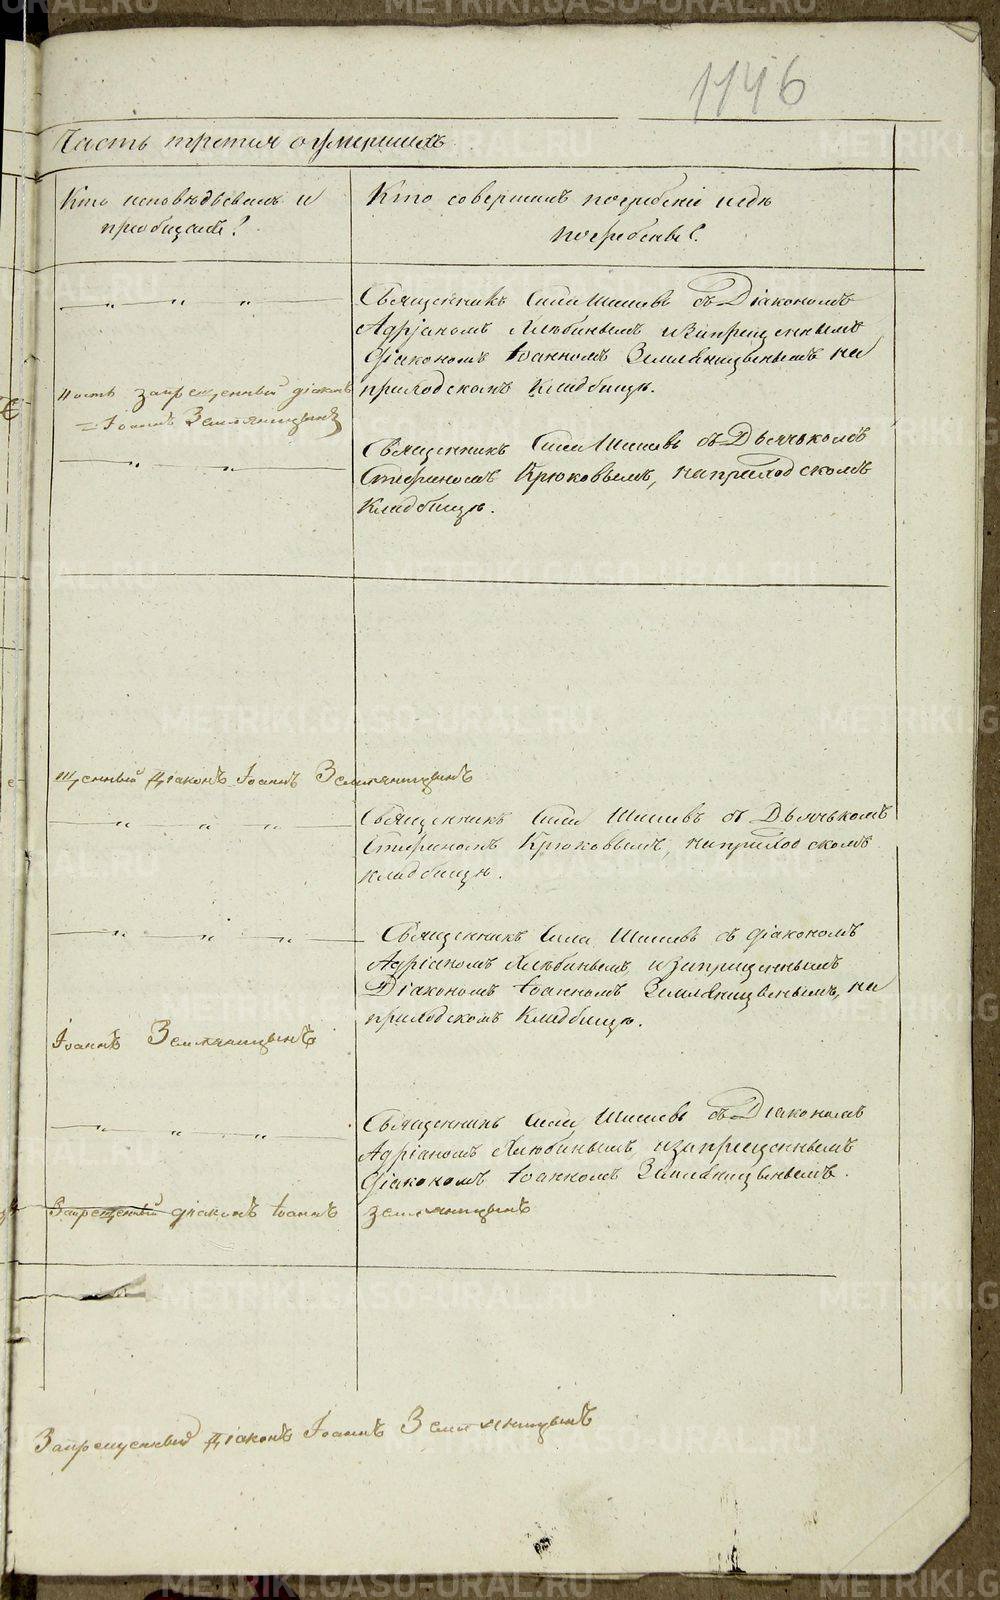 1146
Часть третия о умершихъ
Кто исповѣдывалъ и
пріобщалъ?
Кто совершилъ погребеніе и гдѣ
погребены?
Священникъ Сила Шишевъ съ Діакономъ
Адріаномъ Хлюбинымъ и запрещеннымъ
Діакономъ Іоанномъ Земляницынымъ на
приходскомъ кладбищѣ.
ность запрещенный діаконъ
Іоаннъ Земляницынъ
Священникъ Сила Шишевъ съ Дьячькомъ
Стефаномъ Крюковымъ, на приходскомъ
Кладбищѣ.
щенный Діаконъ Іоаннъ Земляницынъ
Священникъ Сила Шишевъ съ Дьячькомъ
Стефаномъ Крюковымъ, на приходскомъ
кладбищѣ.
Священникъ Сила Шишевъ съ діакономъ
Адріаномъ Хлюбинымъ и запрещеннымъ
Діакономъ Іоанномъ Земляницынымъ, на
приходскомъ Кладбищѣ.
Іоаннъ Земляницынъ
Священникъ Сила Шишевъ съ Діакономъ
Адріаномъ Хлюбинымъ и запрещеннымъ
Діакономъ Іоанномъ Земляницынымъ.
Запрещенный діаконъ Іоаннъ Земляницынъ
Запрещенный Діаконъ Іоаннъ Земляницынъ
METRIKI.GASO-URAL.RU